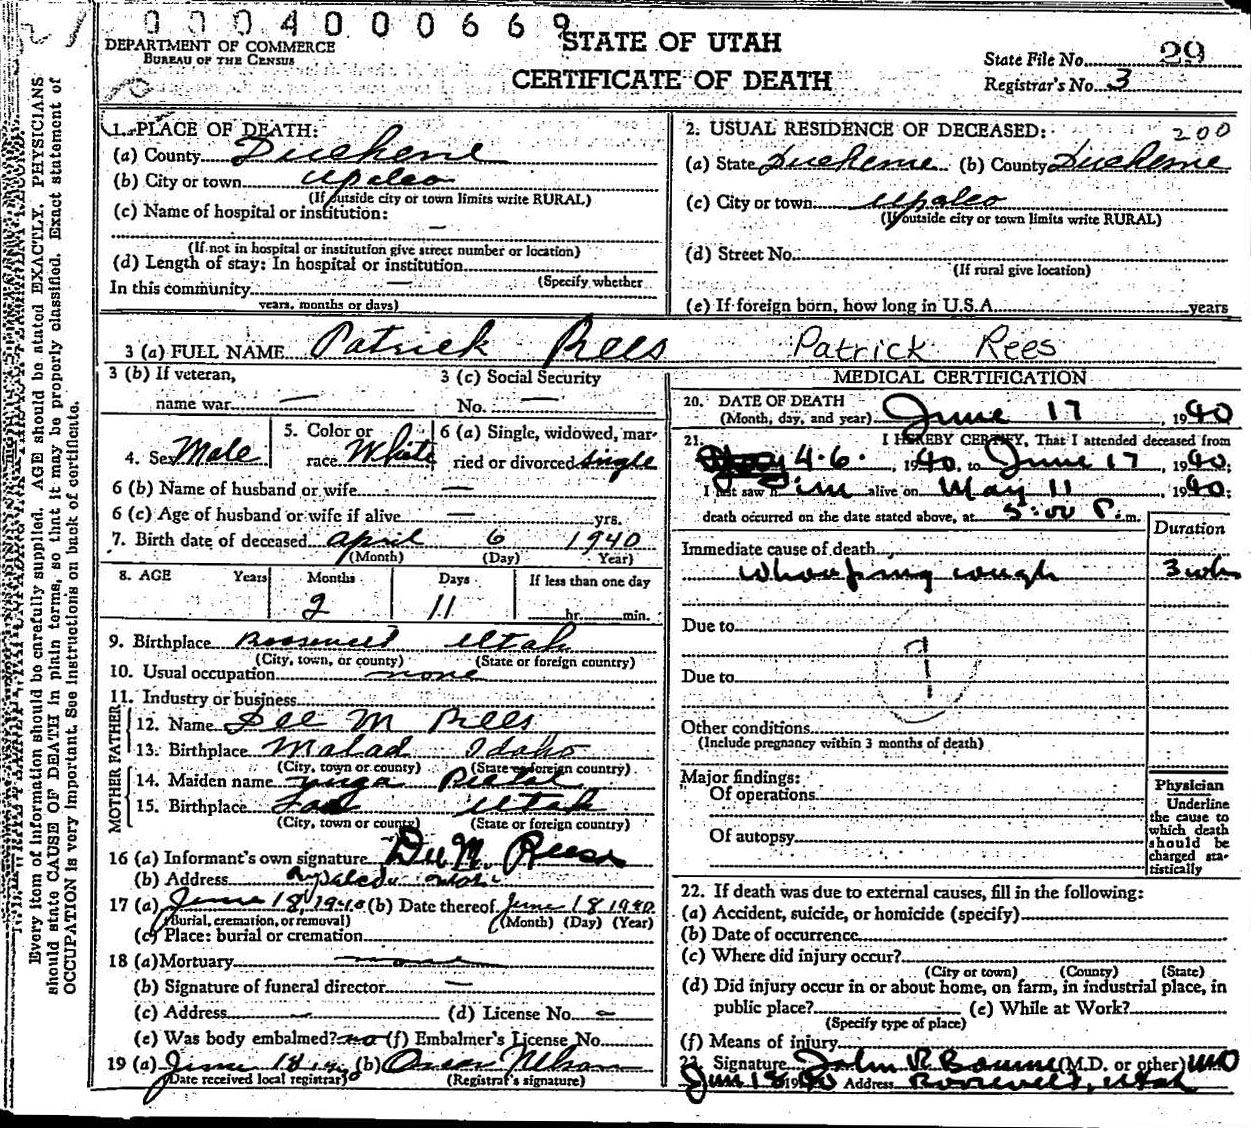 0004000669
DEPARTMENT OF COMMERCE
BUREAU OF THE CENSUS
STATE OF UTAH
CERTIFICATE OF DEATH
State File No. 29
Registrar's No. 3
Every item of information should be carefully supplied. AGE should be stated EXACTLY. PHYSICIANS
should state CAUSE OF DEATH in plain terms, so that it may be properly classified. Exact statement of
OCCUPATION is very important. See instructions on back of certificate.
1. PLACE OF DEATH:
(a) County Duchesne
(b) City or town Upalco
(If outside city or town limits write RURAL)
(c) Name of hospital or institution:
—
(If not in hospital or institution give street number or location)
(d) Length of stay: In hospital or institution
(Specify whether
In this community —
years, months or days)
2. USUAL RESIDENCE OF DECEASED: 200
(a) State Duchesne (b) County Duchesne
(c) City or town Upalco
(If outside city or town limits write RURAL)
(d) Street No.
(If rural give location)
(e) If foreign born, how long in U.S.A. years
3 (a) FULL NAME Patrick Rees Patrick Rees
3 (b) If veteran, 3 (c) Social Security
name war — No. —
4. Sex Male 5. Color or race White 6 (a) Single, widowed, married or divorced single
6 (b) Name of husband or wife —
6 (c) Age of husband or wife if alive — yrs.
7. Birth date of deceased April 6 1940
(Month) (Day) Year)
8. AGE Years Months Days If less than one day
2 11 hr. min.
9. Birthplace Roosevelt Utah
(City, town, or county) (State or foreign country)
10. Usual occupation none
11. Industry or business
FATHER
12. Name Dee M Rees
13. Birthplace Malad Idaho
(City, town or county) (State or foreign country)
MOTHER
14. Maiden name
15. Birthplace Utah
(City, town or county) (State or foreign country)
16 (a) Informant's own signature Dee M. Rees
(b) Address Upalco Utah
17 (a) June 18, 1940 (b) Date thereof June 18 1940
(Burial, cremation, or removal) (Month) (Day) (Year)
(c) Place: burial or cremation
18 (a) Mortuary none
(b) Signature of funeral director —
(c) Address — (d) License No. —
(e) Was body embalmed? no (f) Embalmer's License No.
19 (a) June 18 1940 (b) Nelson
(Date received local registrar) (Registrar's signature)
MEDICAL CERTIFICATION
20. DATE OF DEATH
(Month, day, and year) June 17, 1940
21. I HEREBY CERTIFY, That I attended deceased from
4-6, 1940, to June 17, 1940;
I last saw him alive on May 11 1940;
death occurred on the date stated above, at 5:00 P.m.
Duration
Immediate cause of death
Whooping cough 3 wks
Due to
9
Due to
Other conditions
(Include pregnancy within 3 months of death)
Major findings:
Of operations
Of autopsy
Physician
Underline
the cause to
which death
should be
charged sta-
tistically
22. If death was due to external causes, fill in the following:
(a) Accident, suicide, or homicide (specify)
(b) Date of occurrence
(c) Where did injury occur?
(City or town) (County) (State)
(d) Did injury occur in or about home, on farm, in industrial place, in
public place? (e) While at Work?
(Specify type of place)
(f) Means of injury
23 Signature John R Bourne (M.D. or other) MD
June 18 1940 Address Roosevelt, Utah